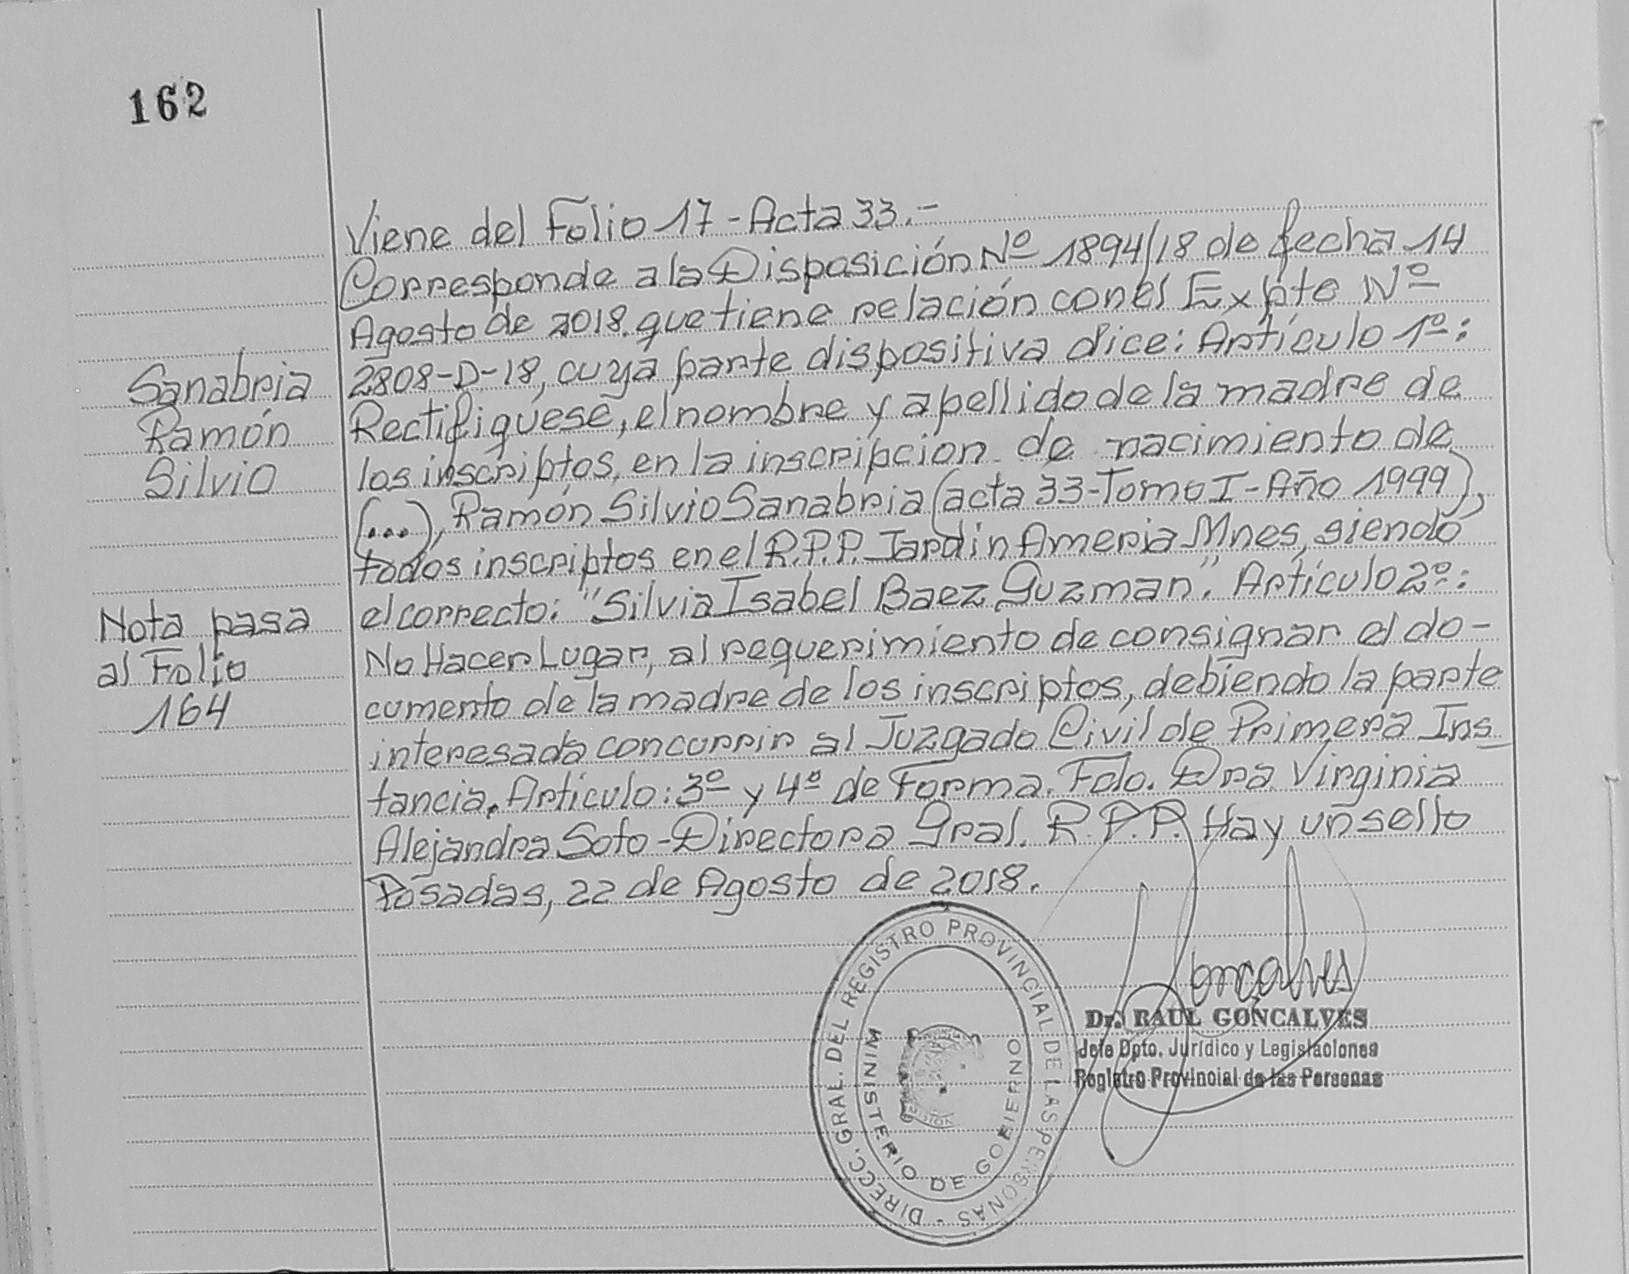 162
Viene del Folio 17 - Acta 33.-
Corresponde a la Disposición Nº 1894/18 de fecha 14
Agosto de 2018. que tiene relación con el Expte Nº
2808-D-18, cuya parte dispositiva dice: Artículo 1º:
Rectifiquese, el nombre y apellido de la madre de
los inscriptos, en la inscripcion de nacimiento de
(...), Ramón Silvio Sanabria (acta 33-Tomo I-Año 1999),
todos inscriptos en el R.P.P. Jardin Ameria Mnes, siendo
el correcto: "Silvia Isabel Baez Guzman". Artículo 2º:
No Hacer Lugar, al requerimiento de consignar el do-
cumento de la madre de los inscriptos, debiendo la parte
interesada concurrir al Juzgado Civil de Primera Ins
tancia. Artículo: 3º y 4º de Forma. Fdo. Dra Virginia
Alejandra Soto - Directora Gral. R.P.P. Hay un sello
Posadas, 22 de Agosto de 2018.
Sanabria
Ramón
Silvio
Nota pasa
al Folio
164
DIRECC. GRAL. DEL REGISTRO PROVINCIAL DE LAS PERSONAS -
MINISTERIO DE GOBIERNO
Goncalves
Dr. RAUL GONCALVES
Jefe Dpto. Jurídico y Legislaciones
Registro Provincial de las Personas